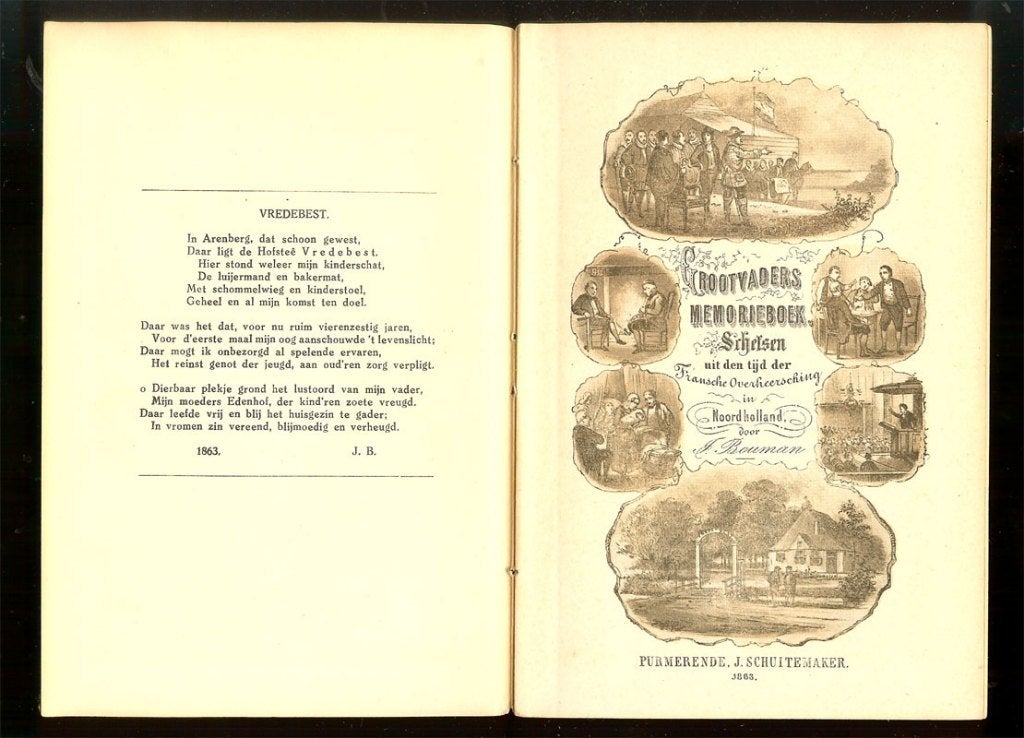 VREDEBEST.
In Arenberg, dat schoon gewest,
Daar ligt de Hofsteê Vredebest.
Hier stond weleer mijn kinderschat,
De luijermand en bakermat,
Met schommelwieg en kinderstoel,
Geheel en al mijn komst ten doel.
Daar was het dat, voor nu ruim vierenzestig jaren,
Voor d'eerste maal mijn oog aanschouwde 't levenslicht;
Daar mogt ik onbezorgd al spelende ervaren,
Het reinst genot der jeugd, aan oud'ren zorg verpligt.
o Dierbaar plekje grond het lustoord van mijn vader,
Mijn moeders Edenhof, der kind'ren zoete vreugd.
Daar leefde vrij en blij het huisgezin te gader;
In vromen zin vereend, blijmoedig en verheugd.
1863. J. B.
GROOTVADERS
MEMORIEBOEK.
Schetsen
uit den tijd der
Fransche Overheersching
in
Noordholland,
door
J. Bouman
PURMERENDE, J. SCHUITEMAKER.
1863.